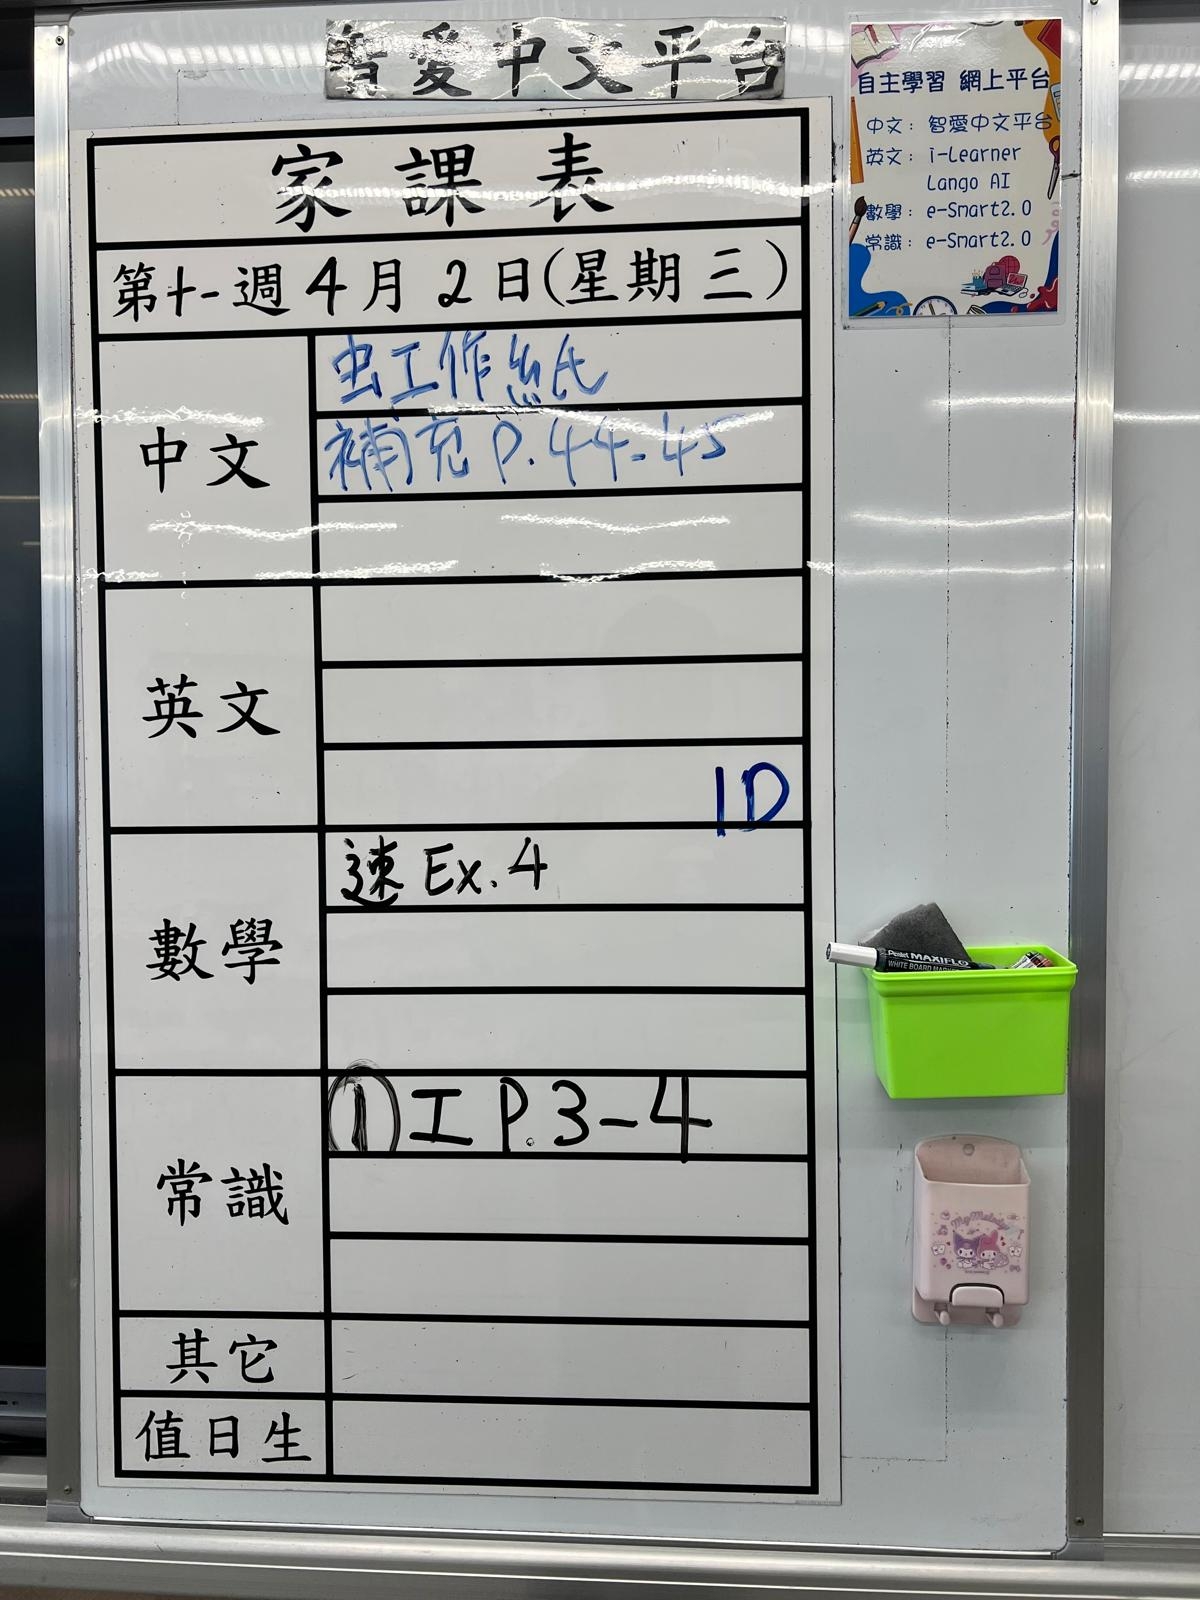 智愛中文平台
自主學習 網上平台
中文： 智愛中文平台
英文： i-Learner
Lango AI
數學： e-Smart2.0
常識： e-Smart2.0
家課表
第十一週4月2日(星期三)
中文
虫工作紙
補充 P.44-45
英文
1D
數學
速 Ex.4
常識
① 工 P.3-4
其它
值日生
Pentel MAXIFLO
WHITE BOARD MARKER
My Melody